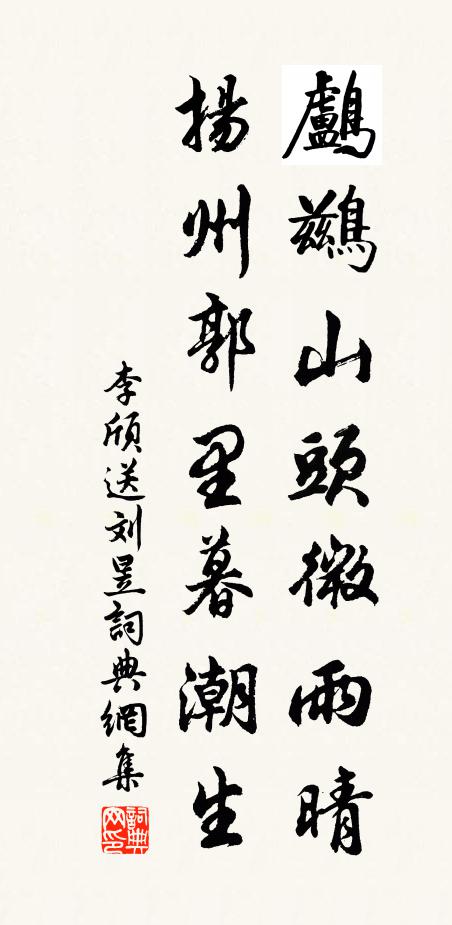 鸕鷀山頭微雨晴
揚州郭里暮潮生
李頎送刘昱詞典網集
詞典网印